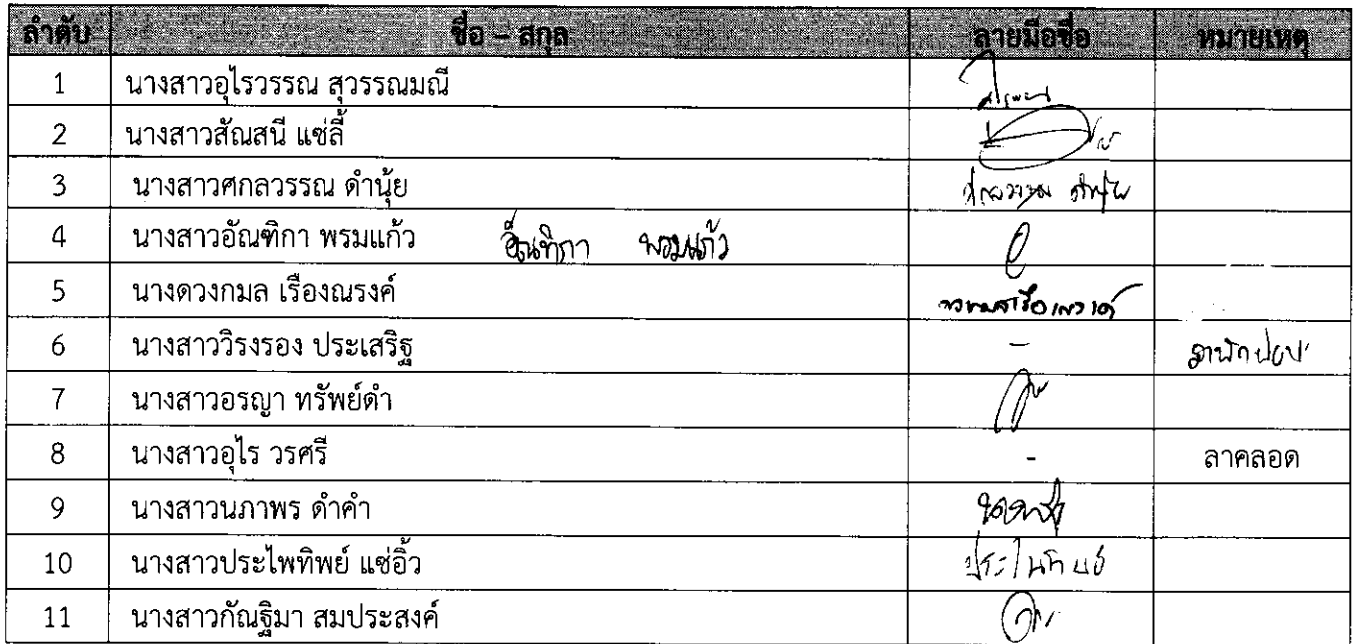 ลำดับ ชื่อ – สกุล ลายมือชื่อ หมายเหตุ
1 นางสาวอุไรวรรณ สุวรรณมณี
2 นางสาวสัณสนี แซ่ลี้
3 นางสาวศกลวรรณ ดำนุ้ย ศกลวรรณ ดำนุ้ย
4 นางสาวอัณฑิกา พรมแก้ว อัณฑิกา พรมแก้ว
5 นางดวงกมล เรืองณรงค์
6 นางสาววิรงรอง ประเสริฐ – ลาพักผ่อน
7 นางสาวอรญา ทรัพย์ดำ
8 นางสาวอุไร วรศรี - ลาคลอด
9 นางสาวนภาพร ดำคำ
10 นางสาวประไพทิพย์ แซ่อิ้ว ประไพทิพย์
11 นางสาวกัณฐิมา สมประสงค์